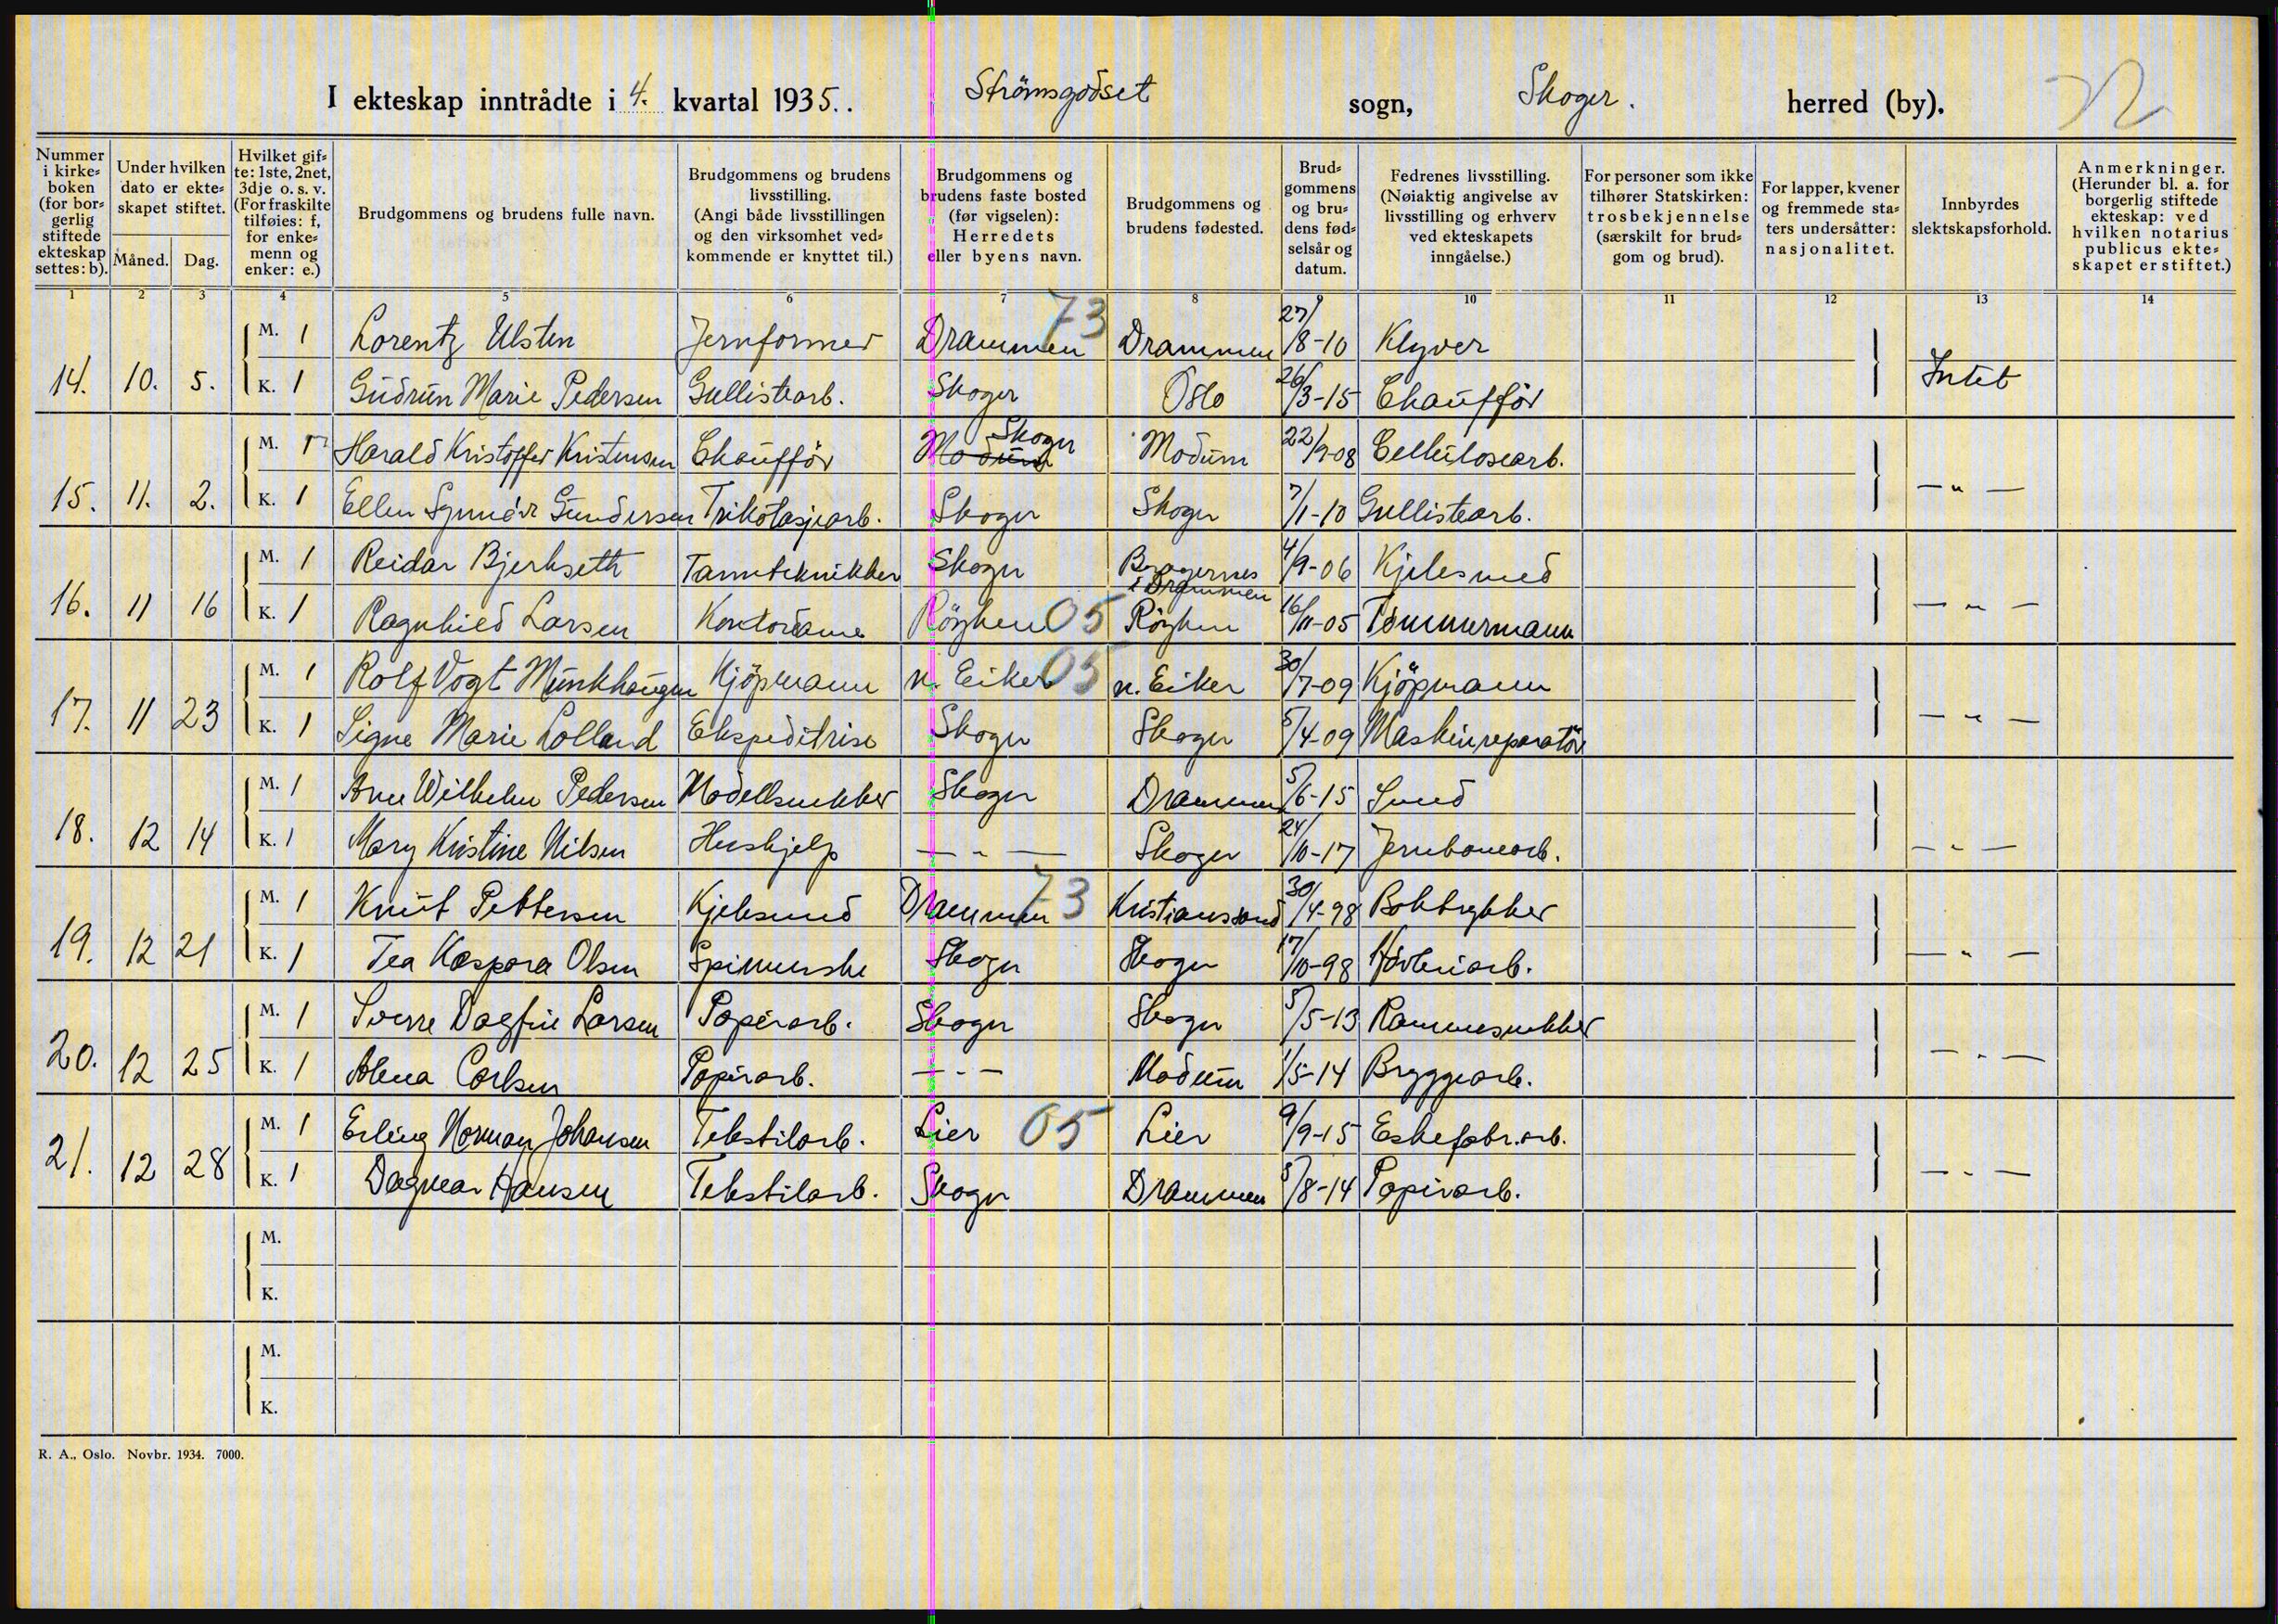 I ekteskap inntrådte i 4. kvartal 1935.. Strömsgodset sogn, Skoger. herred (by).
Nummer i kirke= boken (for bor= gerlig stiftede ekteskap settes: b).
Under hvilken dato er ekte= skapet stiftet.
Måned. Dag.
Hvilket gif= te: 1ste, 2net, 3dje o. s. v. (For fraskilte tilføies: f, for enke= menn og enker: e.)
Brudgommens og brudens fulle navn.
Brudgommens og brudens livsstilling. (Angi både livsstillingen og den virksomhet ved= kommende er knyttet til.)
Brudgommens og brudens faste bosted (før vigselen): Herredets eller byens navn.
Brudgommens og brudens fødested.
Brud= gommens og bru= dens fød= selsår og datum.
Fedrenes livsstilling. (Nøiaktig angivelse av livsstilling og erhverv ved ekteskapets inngåelse.)
For personer som ikke tilhører Statskirken: trosbekjennelse (særskilt for brud= gom og brud).
For lapper, kvener og fremmede sta= ters undersåtter: nasjonalitet.
Innbyrdes slektskapsforhold.
Anmerkninger. (Herunder bl. a. for borgerlig stiftede ekteskap: ved hvilken notarius publicus ekte= skapet er stiftet.)
1 2 3 4 5 6 7 8 9 10 11 12 13 14
M. 1 Lorentz Ulsten Jernformer Drammen 73 Drammen 27/8-10 Klyver
14. 10. 5. K. 1 Gudrun Marie Pedersen Gullistearb. Skoger Oslo 26/3-15 Chaufför Intet
M. 1 Harald Kristoffer Kristensen Chaufför Modum Skoger Modum 22/9-08 Cellulosearb.
15. 11. 2. K. 1 Ellen Synnöve Gundersen Trikotasjearb. Skoger Skoger 7/1-10 Gullistearb. — " —
M. 1 Reidar Bjerkseth Tannteknikker Skoger Bragernes i Drammen 4/9-06 Kjelesmed
16. 11 16 K. 1 Ragnhild Larsen Kontordame Röyken 05 Röyken 16/11-05 Tømmermann — " —
M. 1 Rolf Vogt Munkhaugen Kjöpmann n. Eiker 05 n. Eiker 30/7-09 Kjöpmann
17. 11 23 K. 1 Signe Marie Lolland Ekspeditrise Skoger Skoger 5/4-09 Maskinreparatör — " —
M. 1 Arne Wilhelm Pedersen Modellsnekker Skoger Drammen 5/6-15 Smed
18. 12 14 K. 1 Mary Kristine Nilsen Hushjelp — " — Skoger 24/10-17 Jernbanearb. — " —
M. 1 Knut Pettersen Kjelesmed Drammen 73 Kristianssand 30/4-98 Boktrykker
19. 12 21 K. 1 Tea Kaspara Olsen Spinnerske Skoger Skoger 17/10-98 Høvleriarb. — " —
M. 1 Sverre Dagfin Larsen Papirarb. Skoger Skoger 5/5-13 Rammesnekker
20. 12 25 K. 1 Carlsen Papirarb. — " — Modum 1/5-14 Bryggearb. — " —
M. 1 Erling Norman Johansen Tekstilarb. Lier 05 Lier 9/9-15 Eskefabr.arb.
21. 12 28 K. 1 Dagmar Hansen Tekstilarb. Skoger Drammen 5/8-14 Papirarb. — " —
M.
K.
M.
K.
R. A., Oslo. Novbr. 1934. 7000.